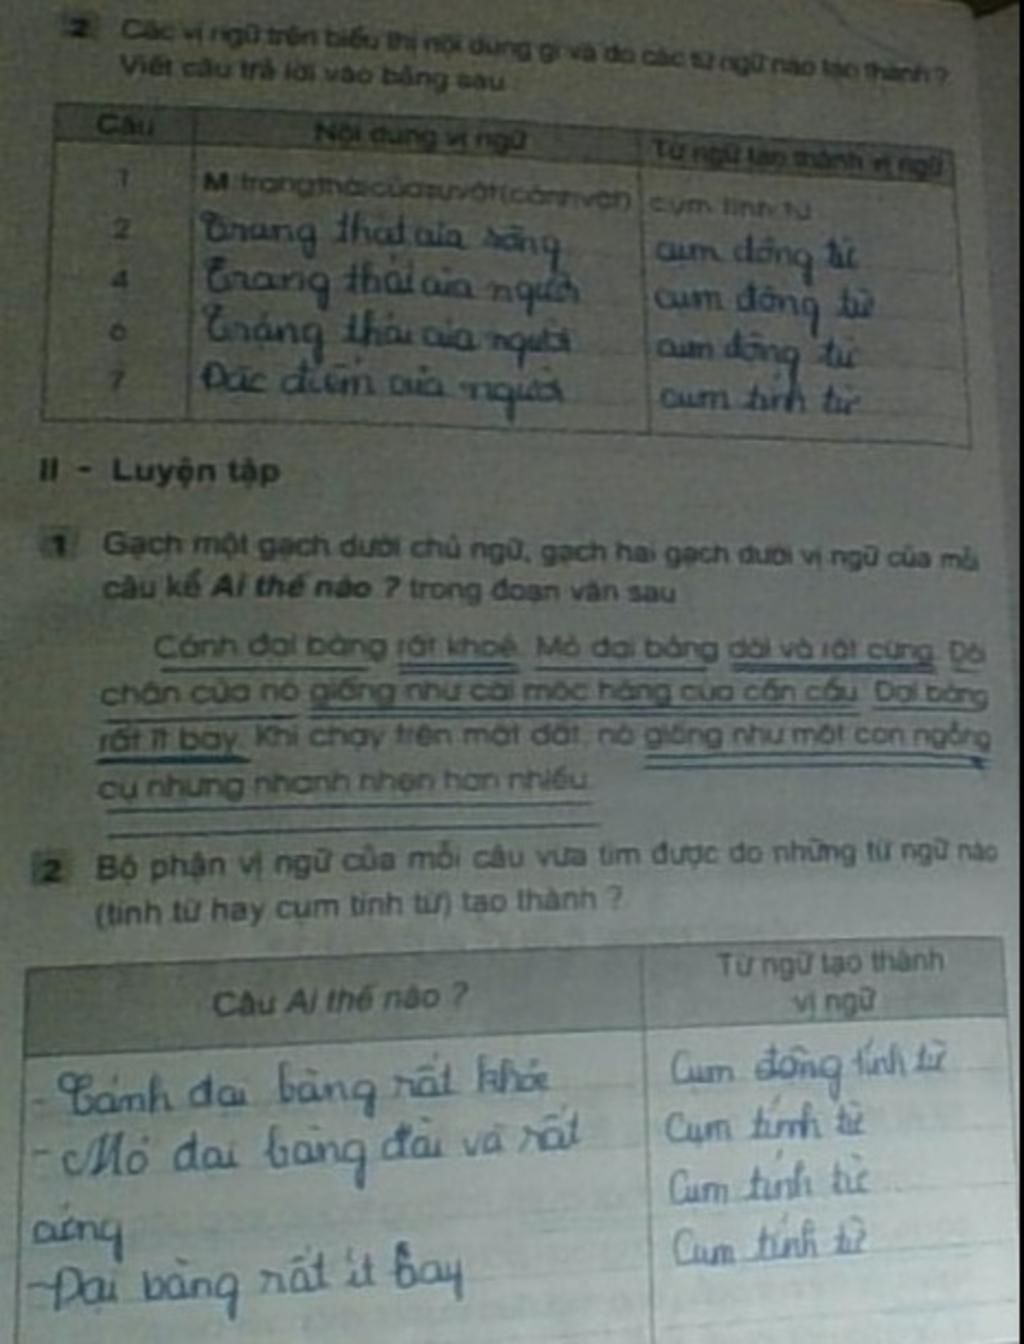 2 Các vị ngữ trên biểu thị nội dung gì và do các từ ngữ nào tạo thành ?
Viết câu trả lời vào bảng sau :
Câu Nội dung vị ngữ Từ ngữ tạo thành vị ngữ
1 M : trạng thái của sự vật (cảnh vật) cụm tính từ
2 Trạng thái của sông cụm động từ
4 Trạng thái của người cụm động từ
6 Trạng thái của người cụm động từ
7 Đặc điểm của người cụm tính từ
II - Luyện tập
1 Gạch một gạch dưới chủ ngữ, gạch hai gạch dưới vị ngữ của mỗi
câu kể Ai thế nào ? trong đoạn văn sau
Cánh đại bàng rất khoẻ. Mỏ đại bàng dài và rất cứng. Đôi
chân của nó giống như cái móc hàng của cần cẩu. Đại bàng
rất ít bay. Khi chạy trên mặt đất, nó giống như một con ngỗng
cụ nhưng nhanh nhẹn hơn nhiều.
2 Bộ phận vị ngữ của mỗi câu vừa tìm được do những từ ngữ nào
(tính từ hay cụm tính từ) tạo thành ?
Câu Ai thế nào ? Từ ngữ tạo thành
vị ngữ
- Cánh đại bàng rất khỏe Cụm động tính từ
- Mỏ đại bàng dài và rất Cụm tính từ
cứng Cụm tính từ
- Đại bàng rất ít bay Cụm tính từ